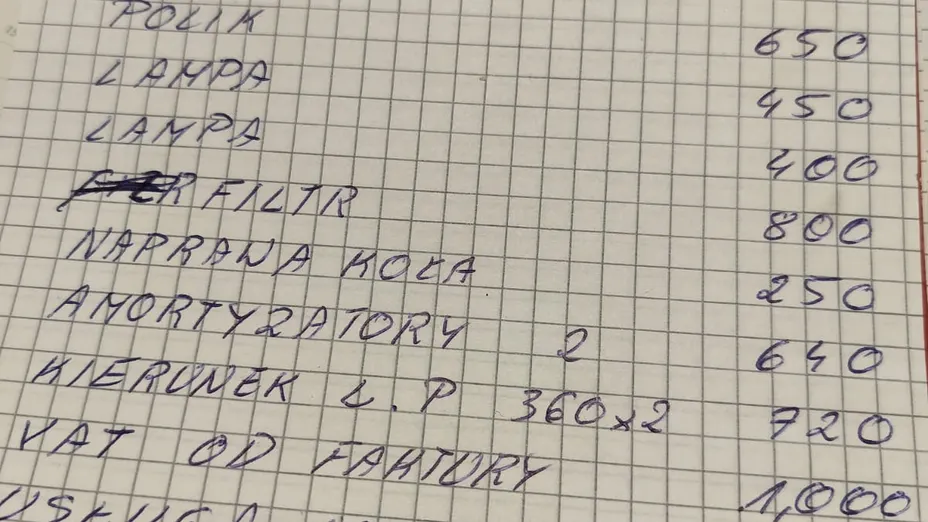 POLIK 650
LAMPA 450
LAMPA 400
FILTR 800
NAPRAWA KOŁA 250
AMORTYZATORY 2 640
KIERUNEK L.P 360x2 720
VAT OD FAKTURY 1,000